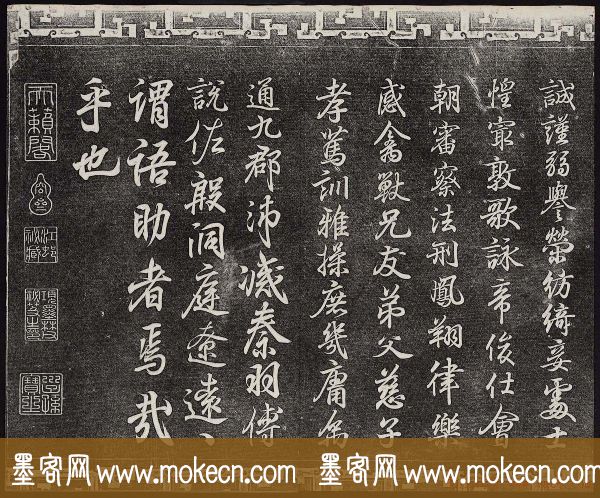 誠謹弱譽榮彷綺妾處士
惶寂敦歌詠帝俊仕會
朝審察法刑鳳翔律樂
感禽獸兄友弟父慈子
孝篤訓雅操庶幾庸
通九郡沛滅秦羽傅
說佐殷洞庭遼遠
謂語助者焉哉
乎也
天籟閣
江邨
秘藏
墨客网 www.mokecn.com 墨客网 www.mokecn.com